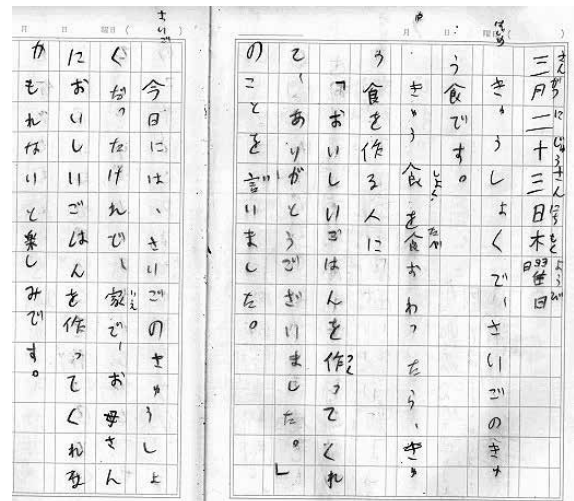 月 日 曜日( はじめ )
三月二十三日木曜日
きゅうしょくで、さいごのきゅ
う食です。
きゅう食を食おわったら、きゅ
う食を作る人に
「おいしいごはんを作ってくれ
て、ありがとうございました。」
のことを言いました。
月 日 曜日( さいご )
今日には、さいごのきゅうしょ
くだったけれで、家で、お母さん
においしいごはんを作ってくれる
かもれないと楽しみです。